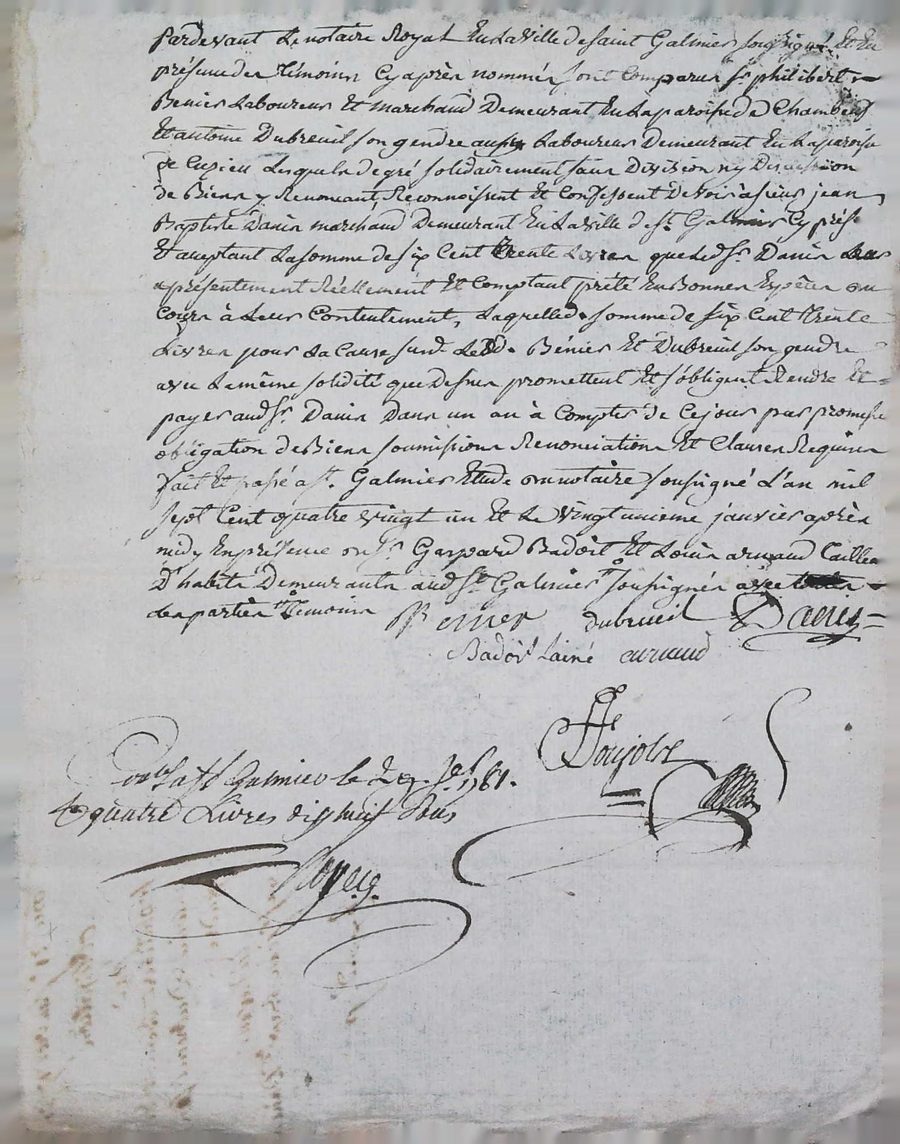 Pardevant Le notaire Royal En La Ville de saint Galmier soussigné. Et En
présence des Témoins Cy après nommés sont Comparus Sr. philibert
Benier Laboureur Et marchand Demeurant En La paroisse de Chambeuf
Et antoine Dubreuil son gendre aussy Laboureur Demeurant En La paroisse
de Cuzieu Lesquels de gré solidairement sans Division ny Discussion
de Biens y Renonçant, Reconnoissent Et Confessent Devoir à sieur jean
Baptiste Danis marchand Demeurant En La Ville de st. Galmier Cy présent
Et acceptant La somme de six Cent Trente Livres que Led. sr. Danis
a présentement Réellement Et Comptant prété En Bonnes Espèces au
Cours à Leur Contentement, Laquelle d. somme de six Cent Trente
Livres pour La Cause susd. Lesd. Bénier Et Dubreuil son gendre
avec La même solidité que Dessus promettent Et s'obligent Rendre Et
payer aud. sr. Danis Dans un an à Compter de Ce jour par promesse
obligation de Biens soumissions Renonciations Et Clauses Requises
fait Et passé à st. Galmier Etude du notaire soussigné L'an mil
sept Cent quatre vingt un Et Le Vingt unieme janvier après
midy En présence de Sr. Gaspard Badoit Et Louis arnaud
D'habits Demeurants aud. St. Galmier soussignés avec
des parties Témoins Benier dubreuil Danis
Badoit Lainé arnaud
a st Galmier le 1781.
quatre Livres dix huit sous